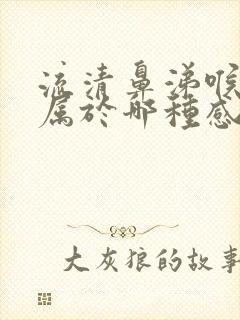 流清鼻涕喉
属於哪種感
大灰狼的故事